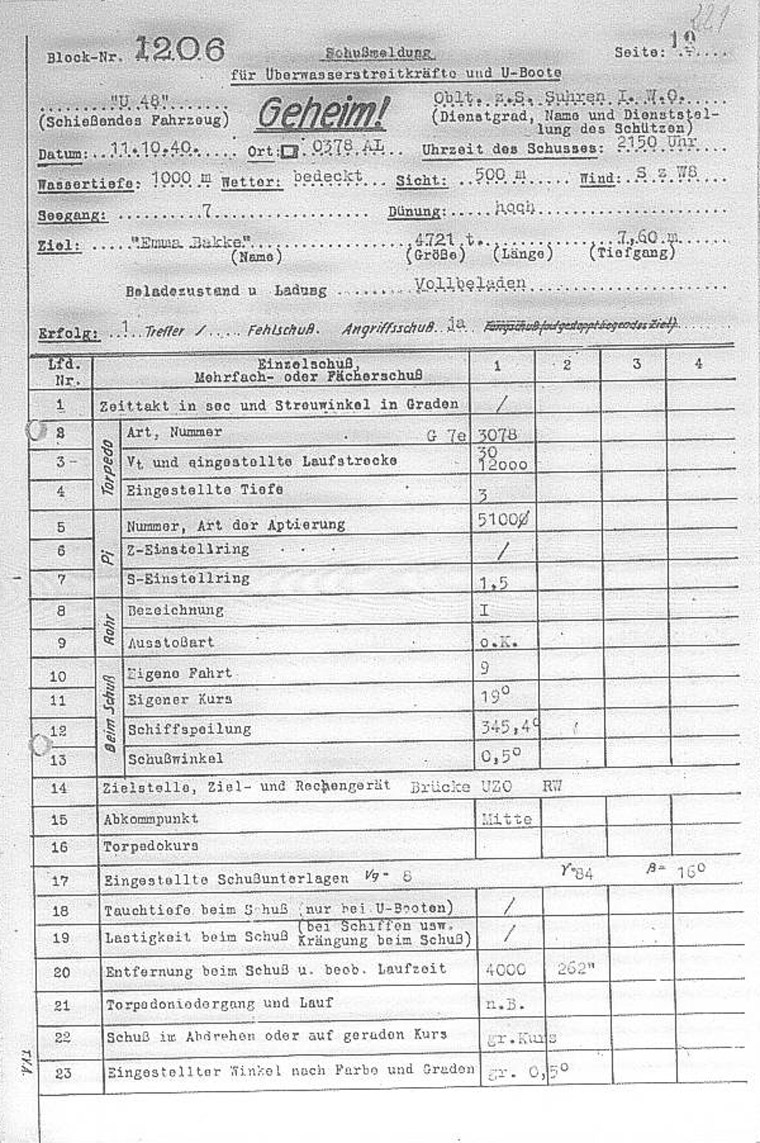 221
Block-Nr. 1206 Schußmeldung Seite: 19
für Überwasserstreitkräfte und U-Boote
"U 48" Geheim! Oblt. z.S. Suhren I. W.O.
(Schießendes Fahrzeug) (Dienstgrad, Name und Dienststel-
lung des Schützen)
Datum: 11.10.40. Ort: 0378 AL Uhrzeit des Schusses: 2150 Uhr
Wassertiefe: 1000 m Wetter: bedeckt Sicht: 500 m Wind: S z W8
Seegang: 7 Dünung: hoch
Ziel: "Emma Bakke" 4721 t. 7,60 m
(Name) (Größe) (Länge) (Tiefgang)
Beladezustand u Ladung Vollbeladen
Erfolg: 1 Treffer / Fehlschuß. Angriffsschuß ja Fangschuß (auf gestoppt liegendes Ziel)
Lfd. Nr. Einzelschuß, 1 2 3 4
Mehrfach- oder Fächerschuß
1 Zeittakt in sec und Streuwinkel in Graden /
Torpedo
2 Art, Nummer G 7e 3078
3 Vt und eingestellte Laufstrecke 30
12000
4 Eingestellte Tiefe 3
Pi
5 Nummer, Art der Aptierung 51000
6 Z-Einstellring /
7 S-Einstellring 1,5
Rohr
8 Bezeichnung I
9 Ausstoßart o.K.
Beim Schuß
10 Eigene Fahrt 9
11 Eigener Kurs 19°
12 Schiffspeilung 345,4°
13 Schußwinkel 0,5°
14 Zielstelle, Ziel- und Rechengerät Brücke UZO RW
15 Abkommpunkt Mitte
16 Torpedokurs
17 Eingestellte Schußunterlagen Vg= 8 γ=84 β= 16°
18 Tauchtiefe beim Schuß (nur bei U-Booten) /
19 Lastigkeit beim Schuß (bei Schiffen usw. /
Krängung beim Schuß)
20 Entfernung beim Schuß u. beob. Laufzeit 4000 262"
21 Torpedoniedergang und Lauf n.B.
22 Schuß im Abdrehen oder auf geraden Kurs gr.Kurs
23 Eingestellter Winkel nach Farbe und Graden gr. 0,5°
T.V.A.